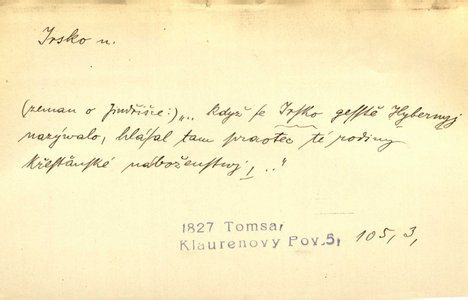 Irsko n.
(zeman o Jindřišce:) „.. když se Irsko gesstě Hybernyj
nazýwalo, hlásal tam praotec té rodiny
křestánské náboženstwj, .."
1827 Tomsa,
Klaurenovy Pov. 5, 105, 3,